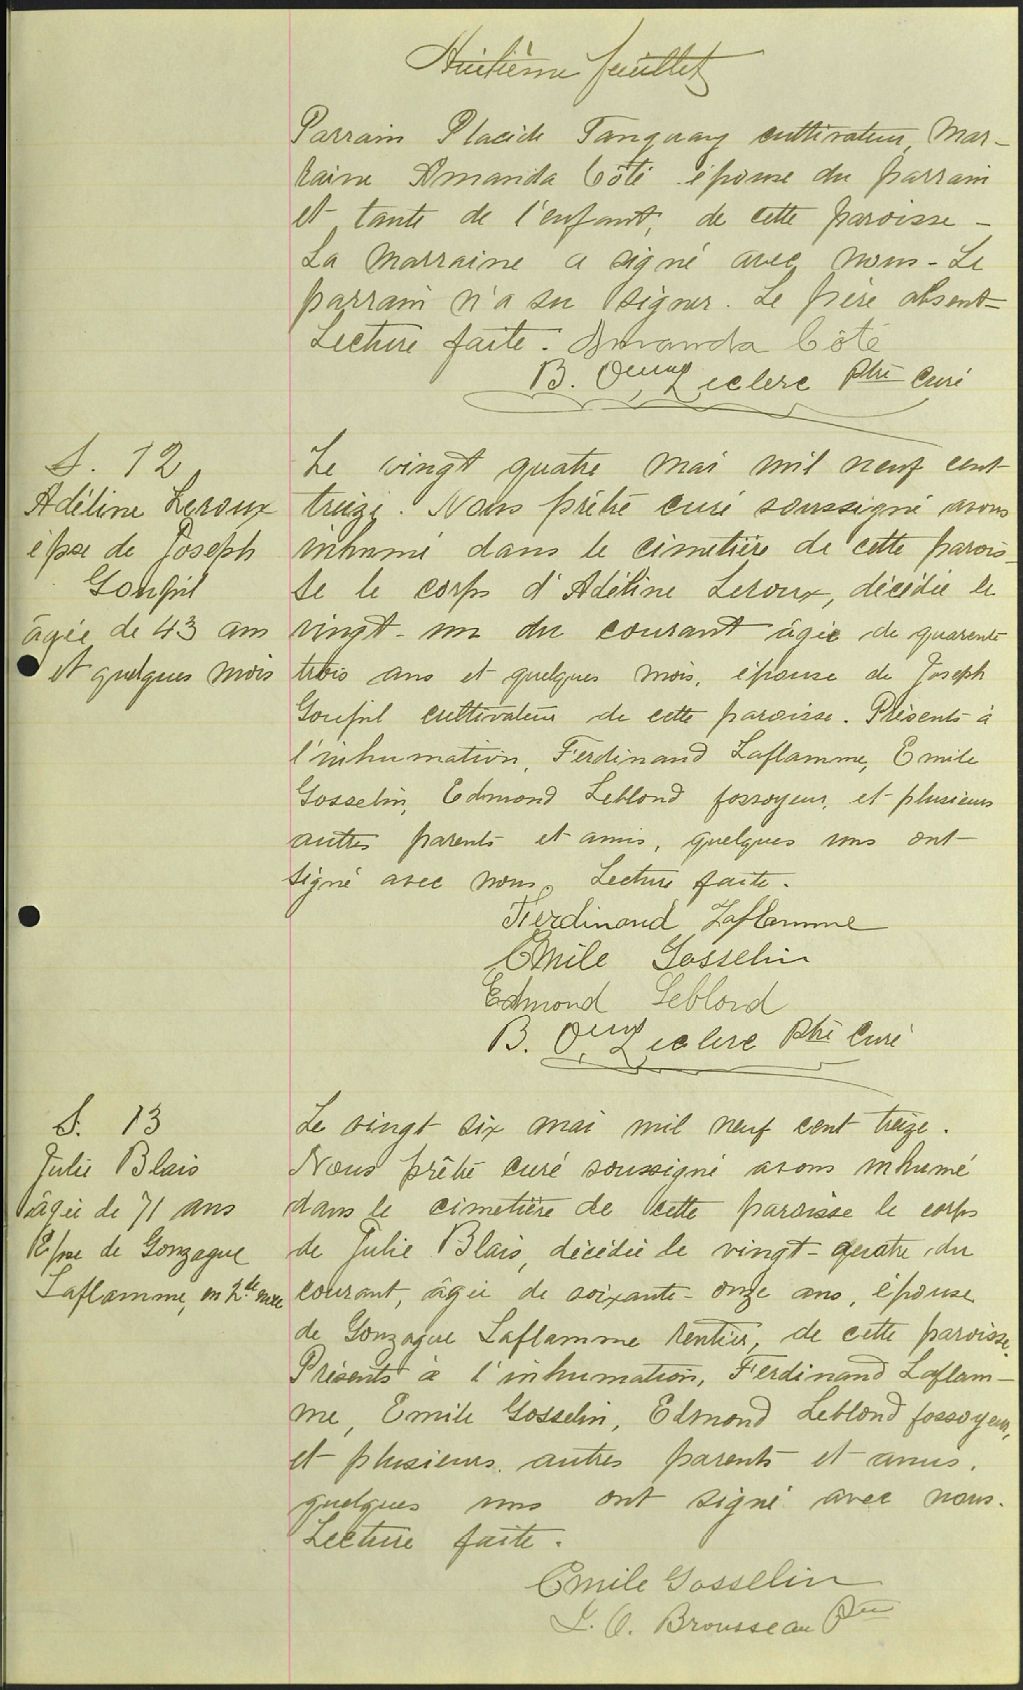 Huitième feuillet
Parrain Placide Tanguay cultivateur, Mar-
raine Amanda Côté épouse du parrain
et tante de l'enfant, de cette paroisse -
La marraine a signé avec nous - Le
parrain n'a su signer. Le père absent -
Lecture faite. Amanda Côté
B. Leclerc Ptre Curé
S. 12
Adéline Leroux
épse de Joseph
Goupil
âgée de 43 ans
et quelques mois
Le vingt quatre mai mil neuf cent
treize. Nous prêtre curé soussigné avons
inhumé dans le cimetière de cette parois
se le corps d'Adéline Leroux, décédée le
vingt-un du courant âgée de quarente
trois ans et quelques mois, épouse de Joseph
Goupil cultivateur de cette paroisse. Présents à
l'inhumation, Ferdinand Laflamme, Emile
Gosselin, Edmond Leblond fossoyeur, et plusieurs
autres parents et amis, quelques uns ont
signé avec nous. Lecture faite.
Ferdinand Laflamme
Emile Gosselin
Edmond Leblond
B. Leclerc Ptre Curé
S. 13
Julie Blais
âgée de 71 ans
Epse de Gonzague
Laflamme, en 2de
Le vingt six mai mil neuf cent treize.
Nous prêtre curé soussigné avons inhumé
dans le cimetière de cette paroisse le corps
de Julie Blais, décédée le vingt-quatre du
courant, âgée de soixante-onze ans, épouse
de Gonzague Laflamme rentier, de cette paroisse.
Présents à l'inhumation, Ferdinand Laflam-
me, Emile Gosselin, Edmond Leblond fossoyeur,
et plusieurs autres parents et amis,
quelques uns ont signé avec nous.
Lecture faite.
Emile Gosselin
J. O. Brousseau Ptre